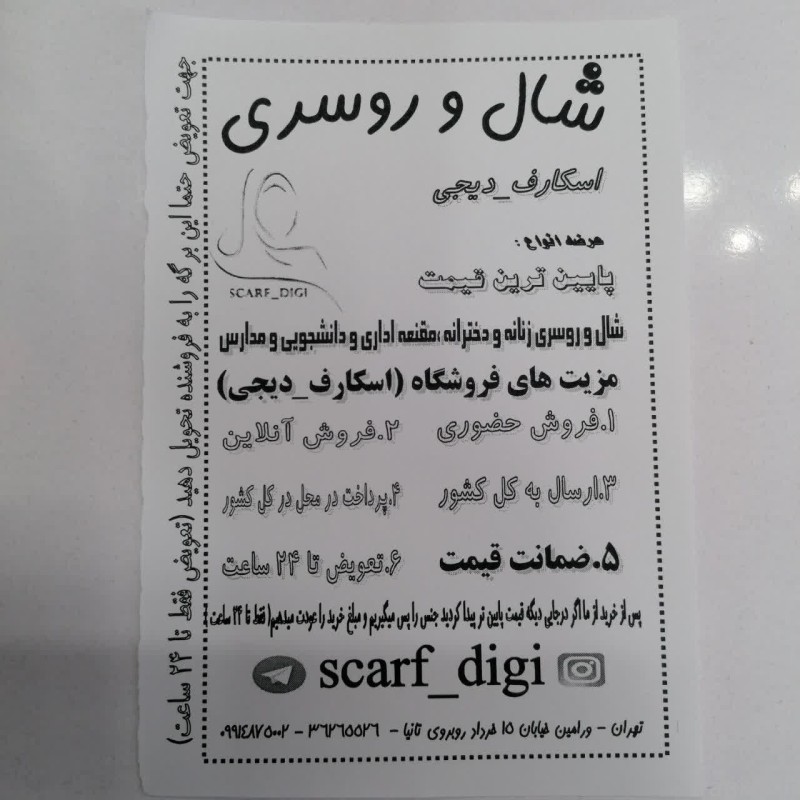 شال و روسری
اسکارف_دیجی
SCARF_DIGI
عرضه انواع :
پایین ترین قیمت
شال و روسری زنانه و دخترانه ،مقنعه اداری و دانشجویی و مدارس
مزیت های فروشگاه (اسکارف_دیجی)
۱.فروش حضوری ۲.فروش آنلاین
۳.ارسال به کل کشور ۴.پرداخت در محل در کل کشور
۵.ضمانت قیمت ۶.تعویض تا ۲۴ ساعت
پس از خرید از ما اگر درجایی دیگه قیمت پایین تر پیدا کردید جنس را پس میگیریم و مبلغ خرید را عودت میدهیم( فقط تا ۲۴ ساعت )
scarf_digi
تهران – ورامین خیابان ۱۵ خرداد روبروی تانیا – ۳۶۲۶۵۵۲۶ – ۰۹۹۱۴۸۷۵۰۰۲
جهت تعویض حتما این برگه را به فروشنده تحویل دهید (تعویض فقط تا ۲۴ ساعت)